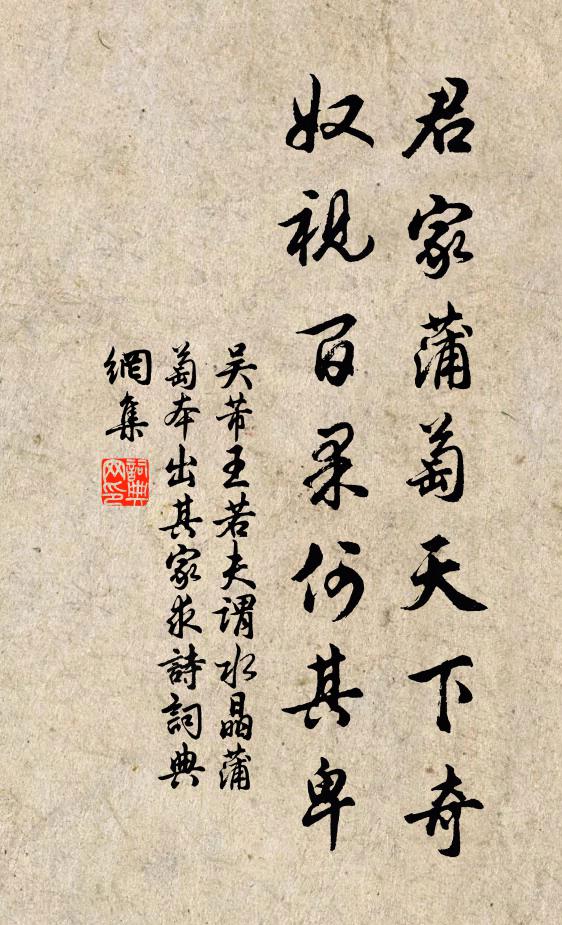 君家蒲萄天下奇
奴視百果何其卑
吴芾王若夫謂水晶蒲
萄本出其家求詩詞典
網集
詞典
网印